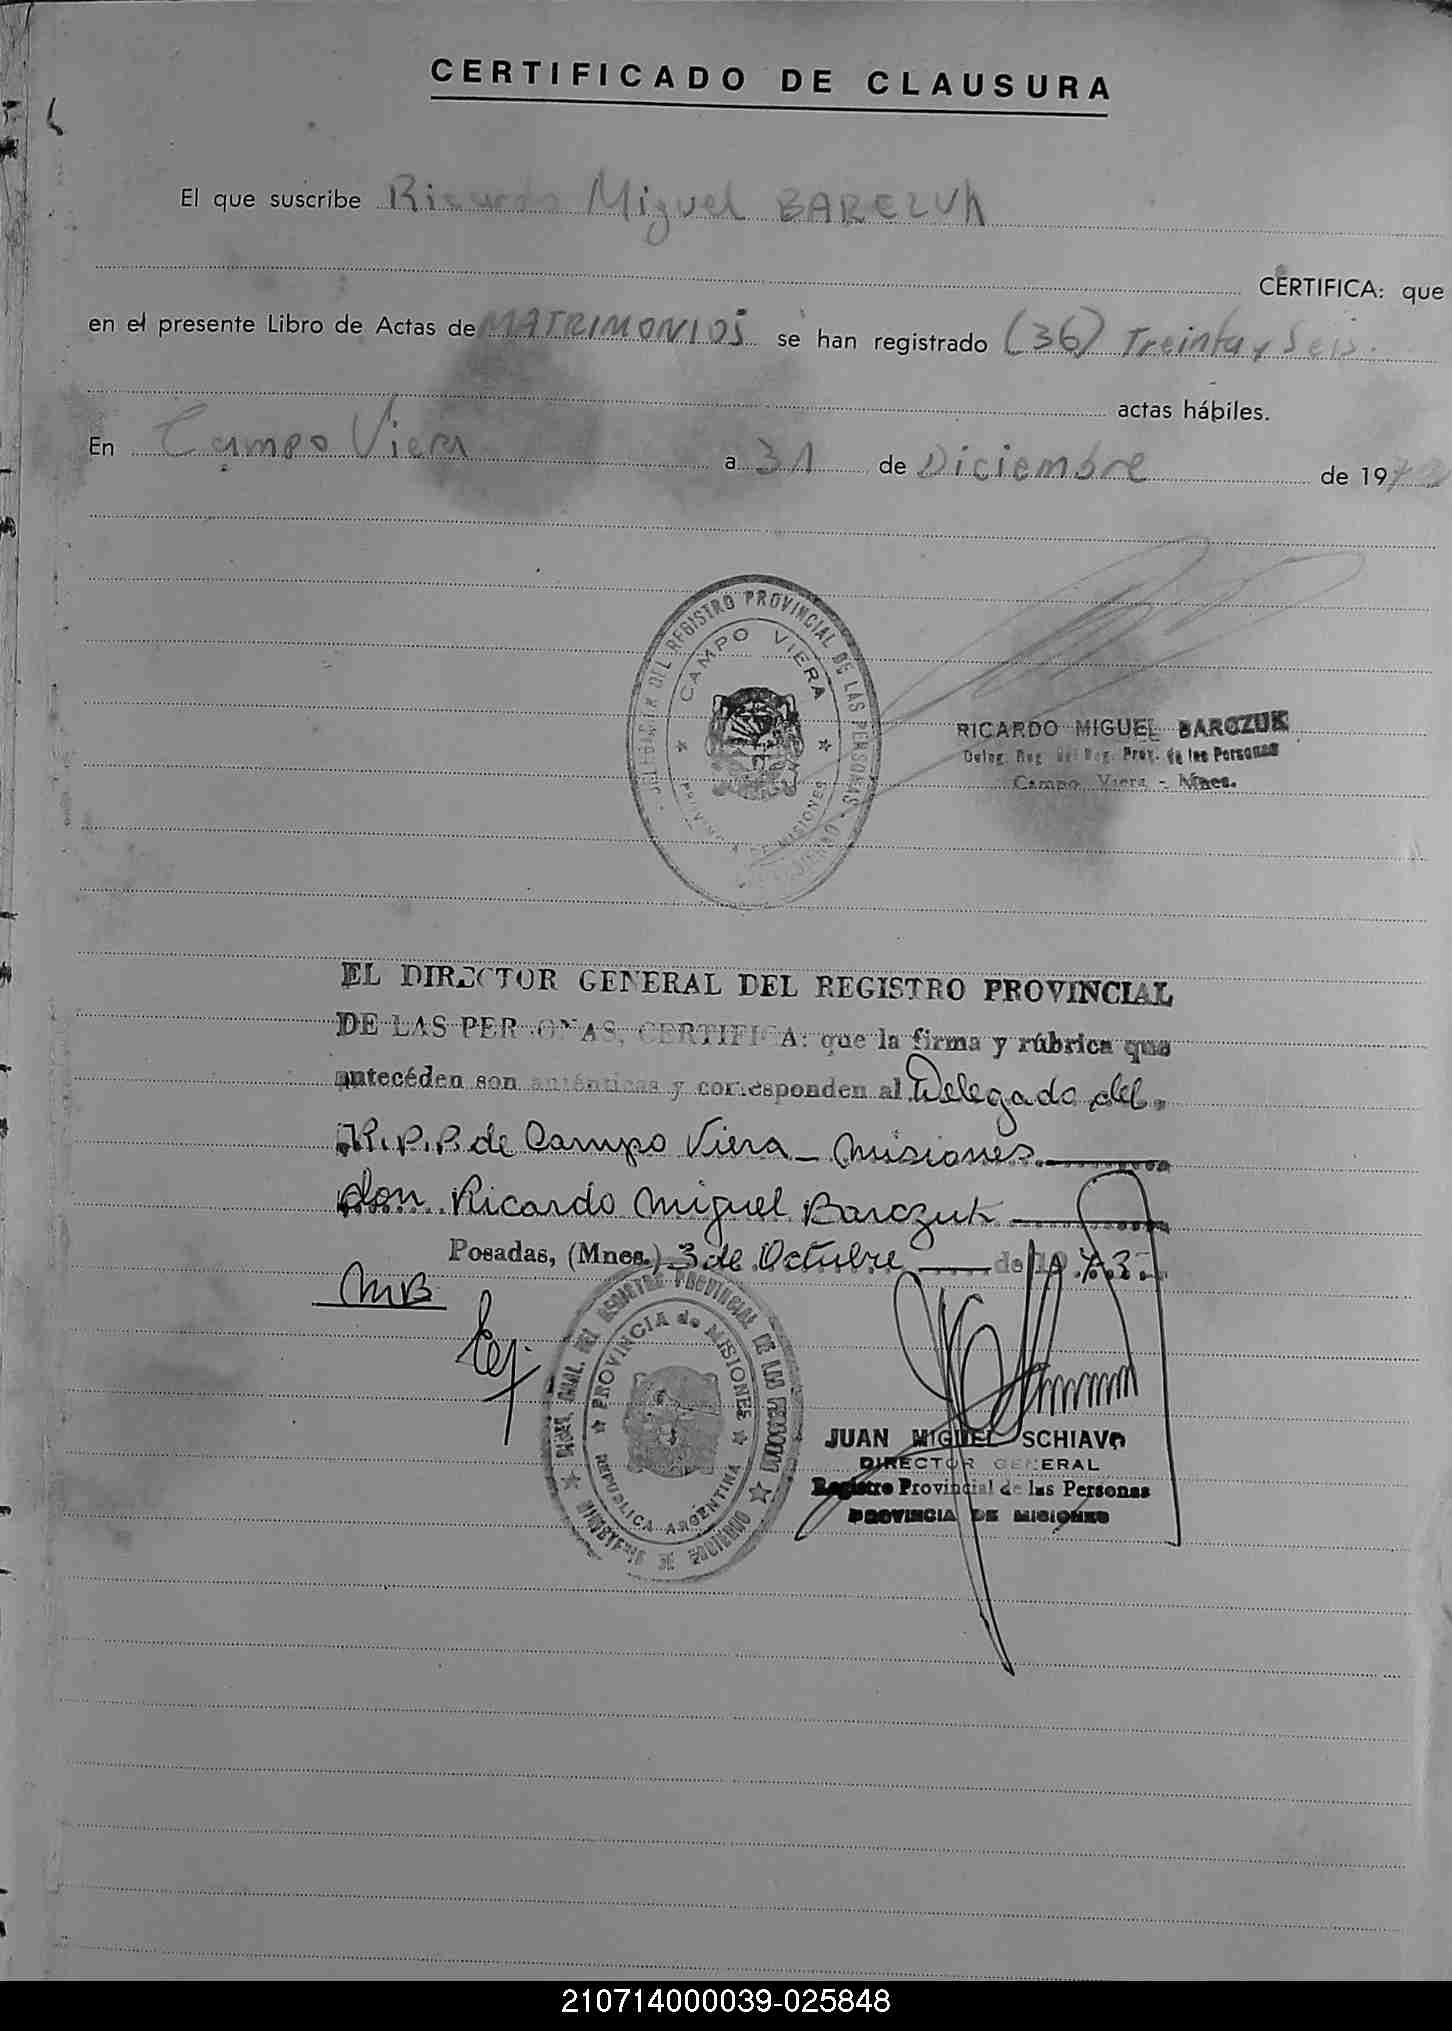 CERTIFICADO DE CLAUSURA
El que suscribe Ricardo Miguel BARCZUK
CERTIFICA: que
en el presente Libro de Actas de MATRIMONIOS se han registrado (36) Treinta y Seis.
actas hábiles.
En Campo Viera a 31 de Diciembre de 197
DELEGACIÓN DEL REGISTRO PROVINCIAL DE LAS PERSONAS
CAMPO VIERA
PROVINCIA DE MISIONES
RICARDO MIGUEL BARCZUK
Deleg. Reg. del Reg. Prov. de las Personas
Campo Viera - Mnes.
EL DIRECTOR GENERAL DEL REGISTRO PROVINCIAL
DE LAS PERSONAS, CERTIFICA: que la firma y rúbrica que
anteceden son auténticas y corresponden al Delegado del
R.P.P. de Campo Viera - Misiones
don Ricardo Miguel Barczuk
Posadas, (Mnes.) 3 de Octubre de 1973
MB
DEL REGISTRO PROVINCIAL DE LAS PERSONAS
PROVINCIA de MISIONES
REPUBLICA ARGENTINA
MINISTERIO DE GOBIERNO
JUAN MIGUEL SCHIAVO
DIRECTOR GENERAL
Registro Provincial de las Personas
PROVINCIA DE MISIONES
210714000039-025848